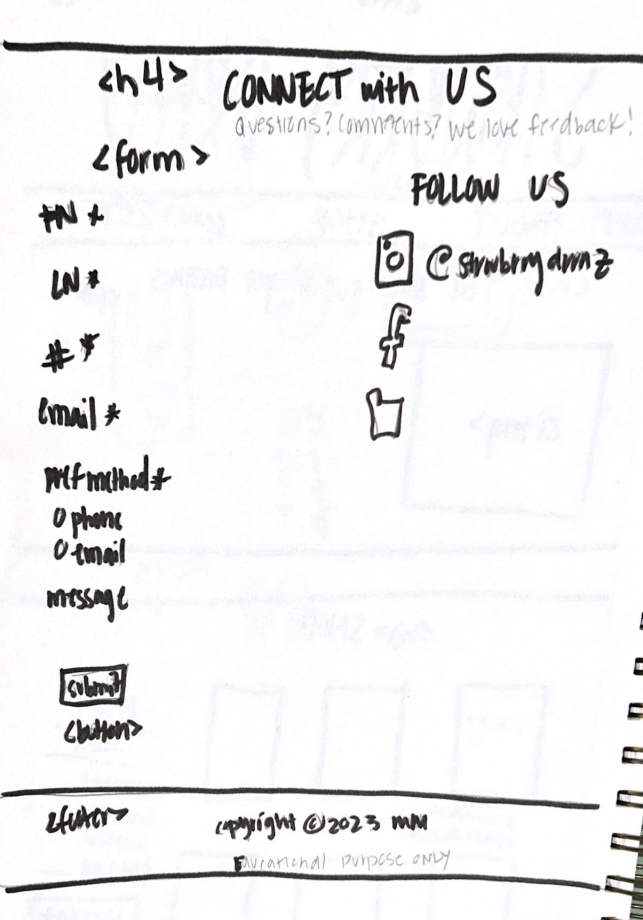 <h4> CONNECT with US
questions? comments? we love feedback!
<form>
FN *
LN *
# *
email *
pref method *
O phone
O email
message
submit
<button>
FOLLOW US
f
<footer>
copyright © 2023 MM
Educational purpose ONLY